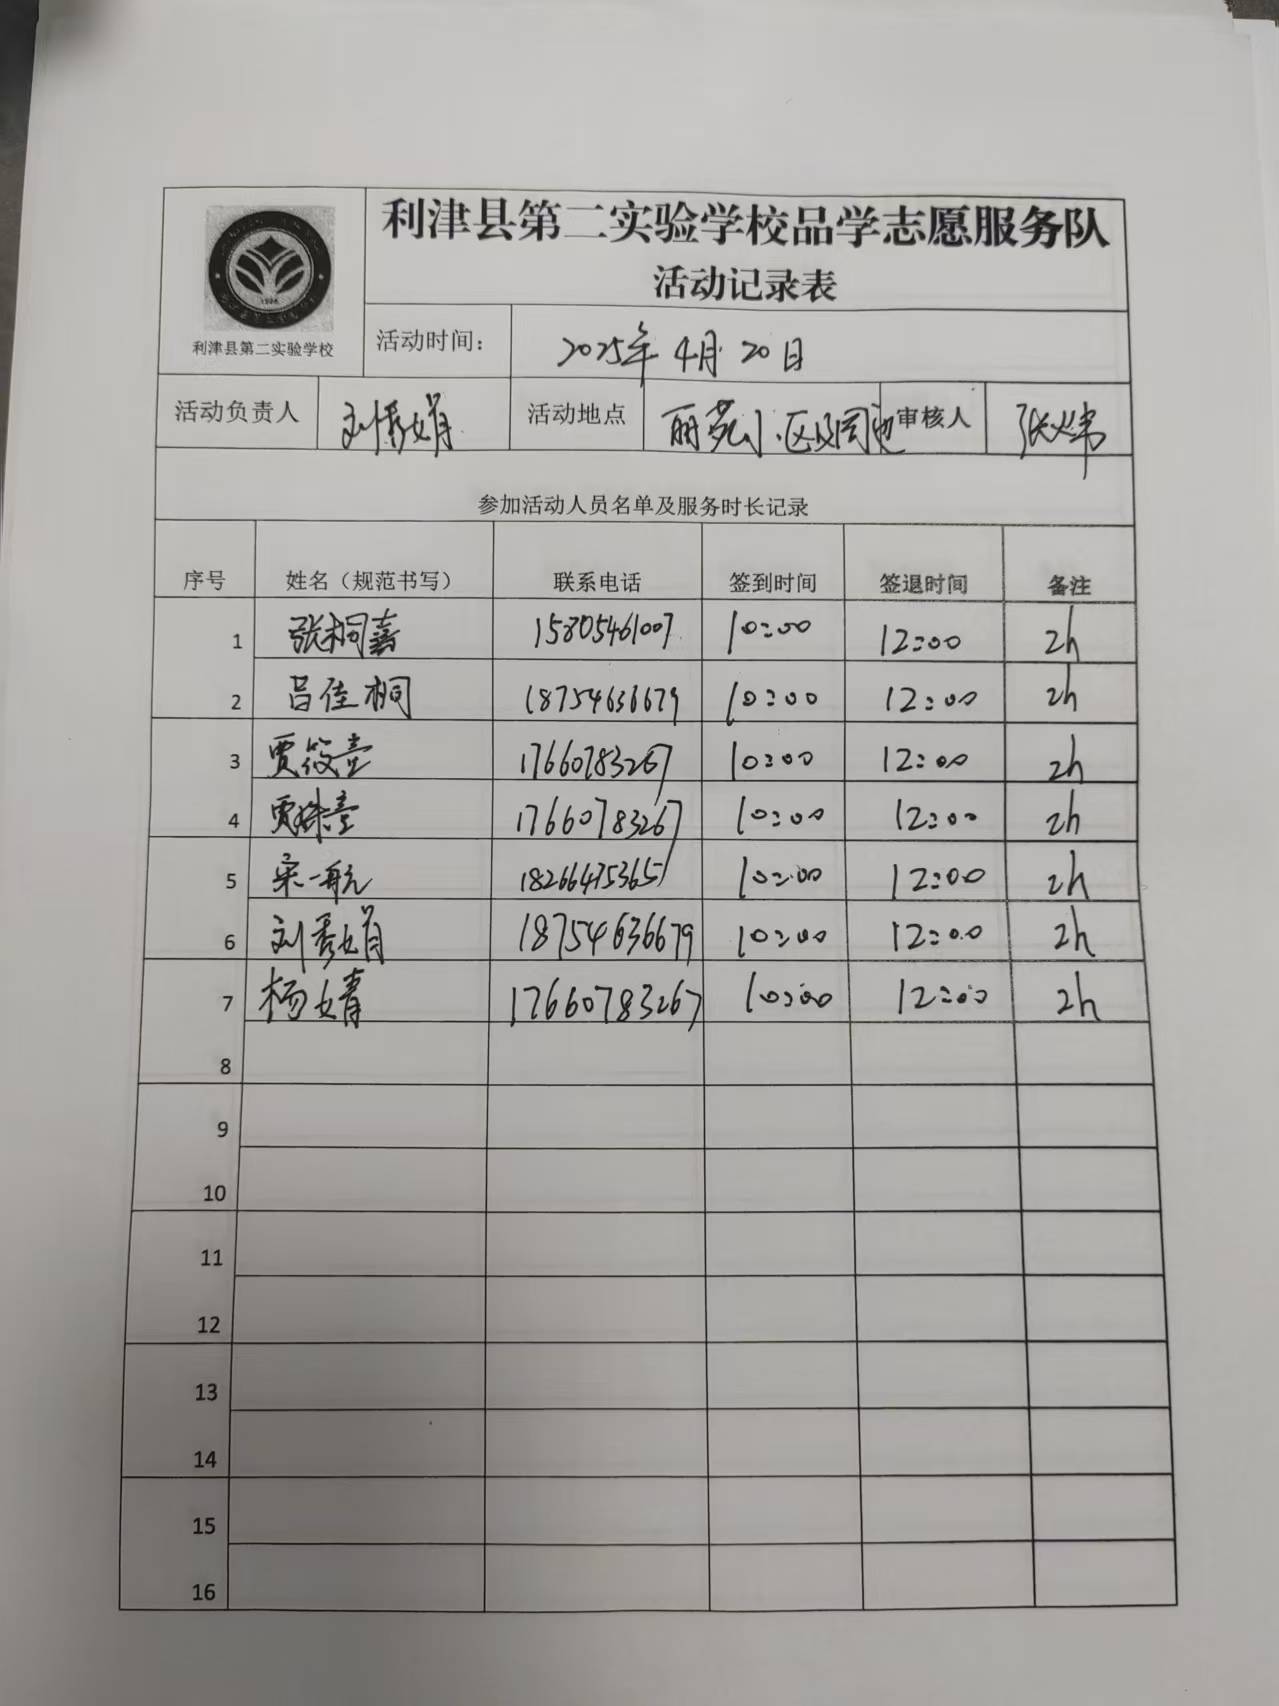 利津县第二实验学校品学志愿服务队
活动记录表
1996
利津县第二实验学校
活动时间： 2025年4月20日
活动负责人 刘秀娟 活动地点 丽苑小区及周边 审核人 张炜
参加活动人员名单及服务时长记录
序号 姓名（规范书写） 联系电话 签到时间 签退时间 备注
1 张桐嘉 15805461007 10:00 12:00 2h
2 吕佳桐 18754636679 10:00 12:00 2h
3 贾筱壹 17660783267 10:00 12:00 2h
4 贾壹 17660783267 10:00 12:00 2h
5 宋一航 18266475365 10:00 12:00 2h
6 刘秀娟 18754636679 10:00 12:00 2h
7 杨婧 17660783267 10:00 12:00 2h
8
9
10
11
12
13
14
15
16